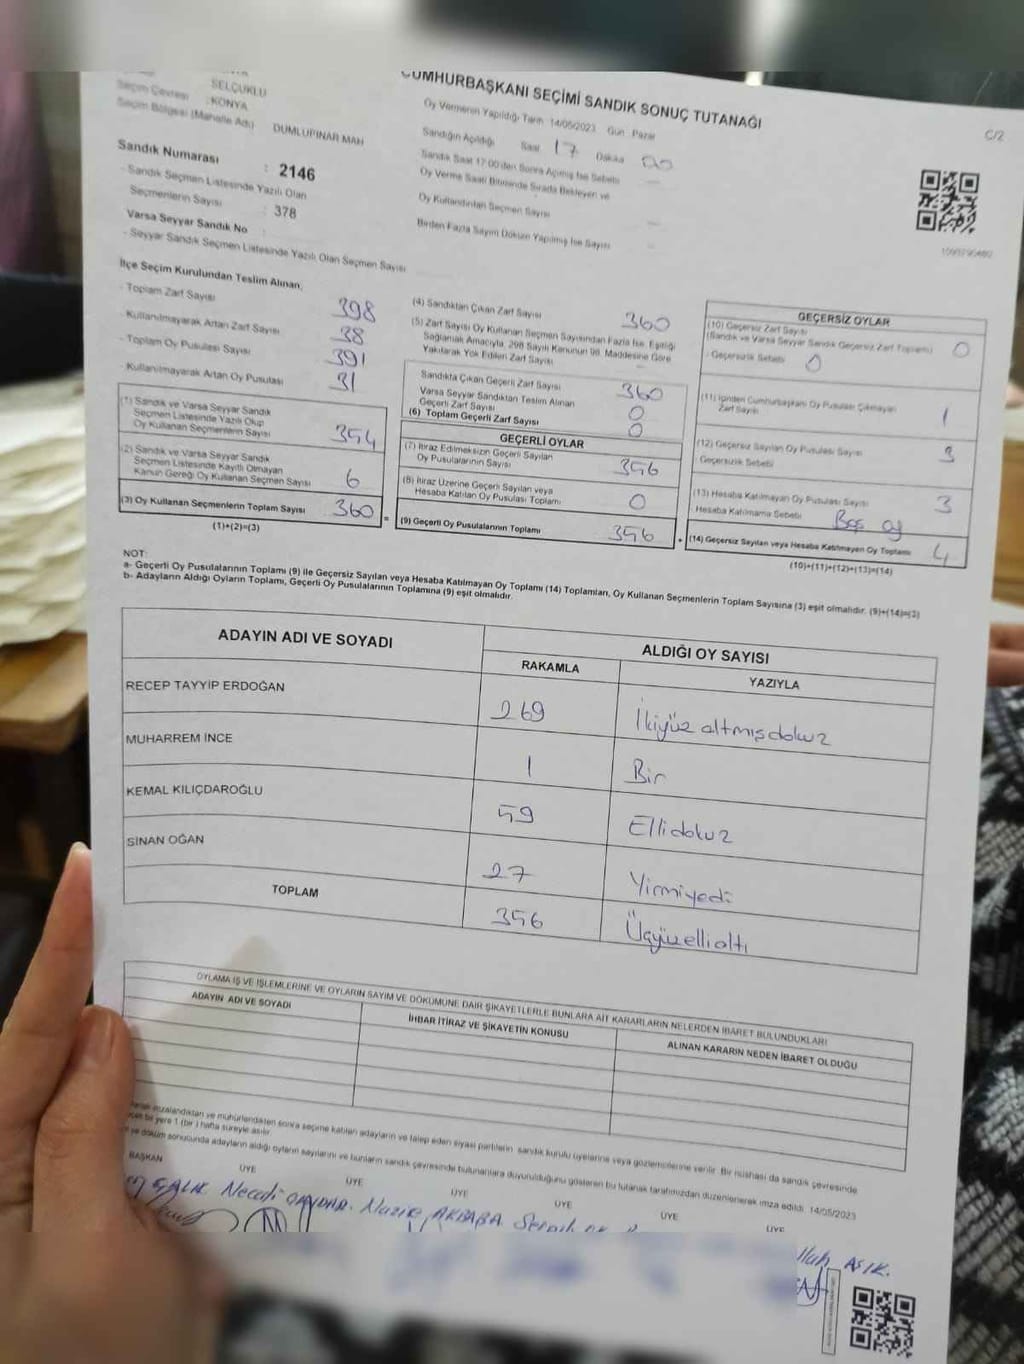 SELÇUKLU
Seçim Çevresi : KONYA
Seçim Bölgesi (Mahalle Adı) DUMLUPINAR MAH
Sandık Numarası : 2146
- Sandık Seçmen Listesinde Yazılı Olan
Seçmenlerin Sayısı : 378
Varsa Seyyar Sandık No
- Seyyar Sandık Seçmen Listesinde Yazılı Olan Seçmen Sayısı
CUMHURBAŞKANI SEÇİMİ SANDIK SONUÇ TUTANAĞI
C/2
Oy Vermenin Yapıldığı Tarih 14/05/2023 Gün Pazar
Sandığın Açıldığı Saat 17 Dakika 00
Sandık Saat 17:00'den Sonra Açılmış İse Sebebi
Oy Verme Saati Bitiminde Sırada Bekleyen ve
Oy Kullandırılan Seçmen Sayısı
Birden Fazla Sayım Döküm Yapılmış İse Sayısı
İlçe Seçim Kurulundan Teslim Alınan,
- Toplam Zarf Sayısı 398
- Kullanılmayarak Artan Zarf Sayısı 38
- Toplam Oy Pusulası Sayısı 391
- Kullanılmayarak Artan Oy Pusulası 31
(1) Sandık ve Varsa Seyyar Sandık
Seçmen Listesinde Yazılı Olup
Oy Kullanan Seçmenlerin Sayısı 354
(2) Sandık ve Varsa Seyyar Sandık
Seçmen Listesinde Kayıtlı Olmayan
Kanun Gereği Oy Kullanan Seçmen Sayısı 6
(3) Oy Kullanan Seçmenlerin Toplam Sayısı 360 =
(1)+(2)=(3)
(4) Sandıktan Çıkan Zarf Sayısı 360
(5) Zarf Sayısı Oy Kullanan Seçmen Sayısından Fazla İse, Eşitliği
Sağlamak Amacıyla, 298 Sayılı Kanunun 98. Maddesine Göre
Yakılarak Yok Edilen Zarf Sayısı
Sandıkta Çıkan Geçerli Zarf Sayısı 360
Varsa Seyyar Sandıktan Teslim Alınan
Geçerli Zarf Sayısı 0
(6) Toplam Geçerli Zarf Sayısı 0
GEÇERLİ OYLAR
(7) İtiraz Edilmeksizin Geçerli Sayılan
Oy Pusulalarının Sayısı 356
(8) İtiraz Üzerine Geçerli Sayılan veya
Hesaba Katılan Oy Pusulası Toplamı 0
(9) Geçerli Oy Pusulalarının Toplamı 356 +
GEÇERSİZ OYLAR
(10) Geçersiz Zarf Sayısı
(Sandık ve Varsa Seyyar Sandık Geçersiz Zarf Toplamı) 0
- Geçersizlik Sebebi 0
(11) İçinden Cumhurbaşkanı Oy Pusulası Çıkmayan
Zarf Sayısı 1
(12) Geçersiz Sayılan Oy Pusulası Sayısı
- Geçersizlik Sebebi
(13) Hesaba Katılmayan Oy Pusulası Sayısı 3
Hesaba Katılmama Sebebi Boş oy
(14) Geçersiz Sayılan veya Hesaba Katılmayan Oy Toplamı 4
(10)+(11)+(12)+(13)=(14)
NOT:
a- Geçerli Oy Pusulalarının Toplamı (9) ile Geçersiz Sayılan veya Hesaba Katılmayan Oy Toplamı (14) Toplamları, Oy Kullanan Seçmenlerin Toplam Sayısına (3) eşit olmalıdır. (9)+(14)=(3)
b- Adayların Aldığı Oyların Toplamı, Geçerli Oy Pusulalarının Toplamına (9) eşit olmalıdır.
ADAYIN ADI VE SOYADI
ALDIĞI OY SAYISI
RAKAMLA YAZIYLA
RECEP TAYYİP ERDOĞAN 269 İkiyüz altmışdokuz
MUHARREM İNCE 1 Bir
KEMAL KILIÇDAROĞLU 59 Ellidokuz
SİNAN OĞAN 27 Yirmiyedi
TOPLAM 356 Üçyüzellialtı
OYLAMA İŞ VE İŞLEMLERİNE VE OYLARIN SAYIM VE DÖKÜMÜNE DAİR ŞİKAYETLERLE BUNLARA AİT KARARLARIN NELERDEN İBARET BULUNDUKLARI
ADAYIN ADI VE SOYADI İHBAR İTİRAZ VE ŞİKAYETİN KONUSU ALINAN KARARIN NEDEN İBARET OLDUĞU
imzalandıktan ve mühürlendikten sonra seçime katılan adayların ve talep eden siyasi partilerin, sandık kurulu üyelerine veya gözlemcilerine verilir. Bir nüshası da sandık çevresinde
bir yere 1 (bir) hafta süreyle asılır.
ve döküm sonucunda adayların aldığı oyların sayılarını ve bunların sandık çevresinde bulunanlara duyurulduğunu gösteren bu tutanak tarafımızdan düzenlenerek imza edildi. 14/05/2023
BAŞKAN ÜYE ÜYE ÜYE ÜYE ÜYE ÜYE
ÇALIK Necati Nazik AKBABA
AŞIK.